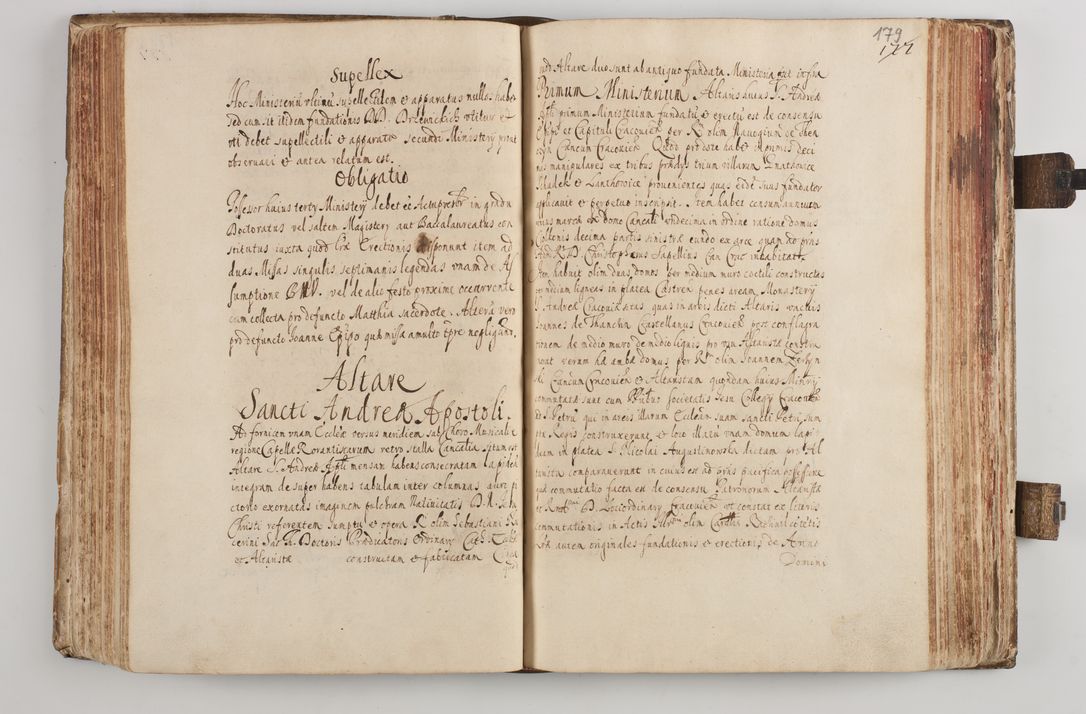 Supellex
Hoc Ministeriũ ultimũ supellectilem et apparatus nullos habet
sed cum sit itidem fundationis DD. utitur et
uti debet supellectili et apparatu secundi Ministerij prout
observari et antea relatum est.
Obligatio
Possessor huius tertij Ministerij debet eē Actu in gradu
Doctoratus vel saltem Magisterij aut Baccalaureatus con
stitutus iuxta quod Erectionis disponunt item ad
duas Missas singulis septimanis legendas unam de As
sumptione BMV. vel de alio festo proxime occurrente
cum collecta pro defuncto Matthia sacerdote. Alterã vero
pro defuncto Joanne Ep̃ipo missa a multo tp̃re
Altare
Sancti Andreæ Apostoli.
Ad fornicem unam Eccliæ versus meridiem sub Choro Musicali e
regione Capellæ Rorantistarum retro stalla Cancellia situm est
Altare S. Andreæ Apli mensam habens consecratam lapideã
integram desuper habens tabulam inter columnas auro pi
ctorio exornatas imaginem pulchram Nativitatis D. N. Jesu
Christi referentem sumptu et opera R. olim Sebastiani
Sac. Th. Doctoris Prædicatoris Ordinarij
et Altaristæ constructam et fabricatam
179
177
Altare duo sunt ab antiquo fundata Ministeria infra
Primum Ministerium Altaris huius S. Andreæ
Apli primum Ministerium fundatũ et erectũ est de consensu
Ep̃i et Capituli Cracovien per R. olim de
Canonicum Cracovien Quod pro dote habet in primis deci
mas manipulares ex tribus prædijs trium villarum
et provenientes quas suus fundator
applicavit et perpetuo inscripsit. Item habet censum annuum
unius marcæ ex domo undecima in ordine ratione domus
decima partis sinistræ eundo ex arce quam ad præs
R.D. Christophorus Sapellius Can Crac inhabitat
Item habuit olim duas domos per medium muro coctili constructas
per medium ligneas in platea Castren penes aream Monasterij
S. Andreæ Cracovien sitas quas in areis dicti Altaris vacuis
Joannes de Thanchin Castellanus Cracovien post conflagra
tionem de medio muro de medio lignis pro usu Altaristæ constru
verum hæ ambæ domus per R. olim Joannem
Canonicum Cracovien et Altaristam quondam huius Minrij
commutatæ sunt cum Pribus Societatis Jesu Collegij Cracovien
S. Petri qui in areis illarum Eccleam suam Sancti Petri sum
ptu Regis construxerunt et loco illarũ unam domum lapi
deam in platea S. Nicolai dictam pro Al
tarista comparaverunt in cuius est ad præs pacifica possessione
quæ commutatio facta est de consensu Patronorum Altaristæ
et D. Loci ordinarij Cracovien ut constat ex literis
commutationis in Actis olim Cardlis
autem originales fundationis et erectionis de Anno
Domini